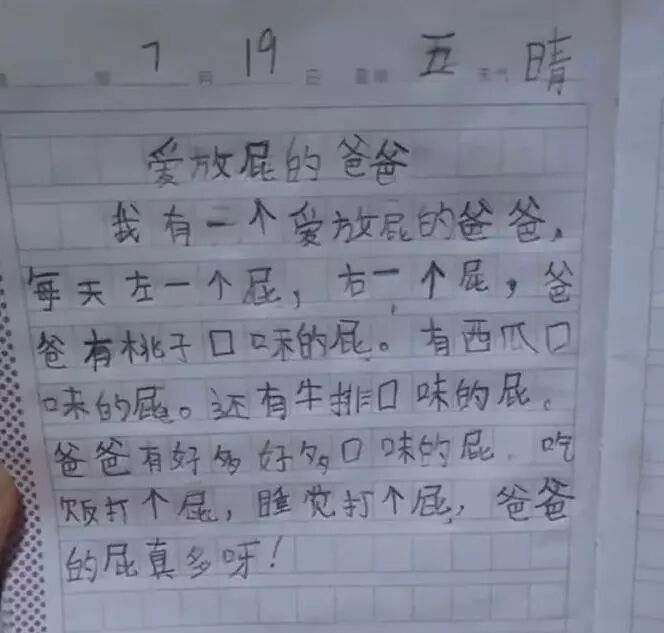 7月19日 星期 五 天气 晴
爱放屁的爸爸
我有一个爱放屁的爸爸,
每天左一个屁,右一个屁,爸
爸有桃子口味的屁。有西瓜口
味的屁。还有牛排口味的屁。
爸爸有好多好多口味的屁.吃
饭打个屁,睡觉打个屁,爸爸
的屁真多呀!